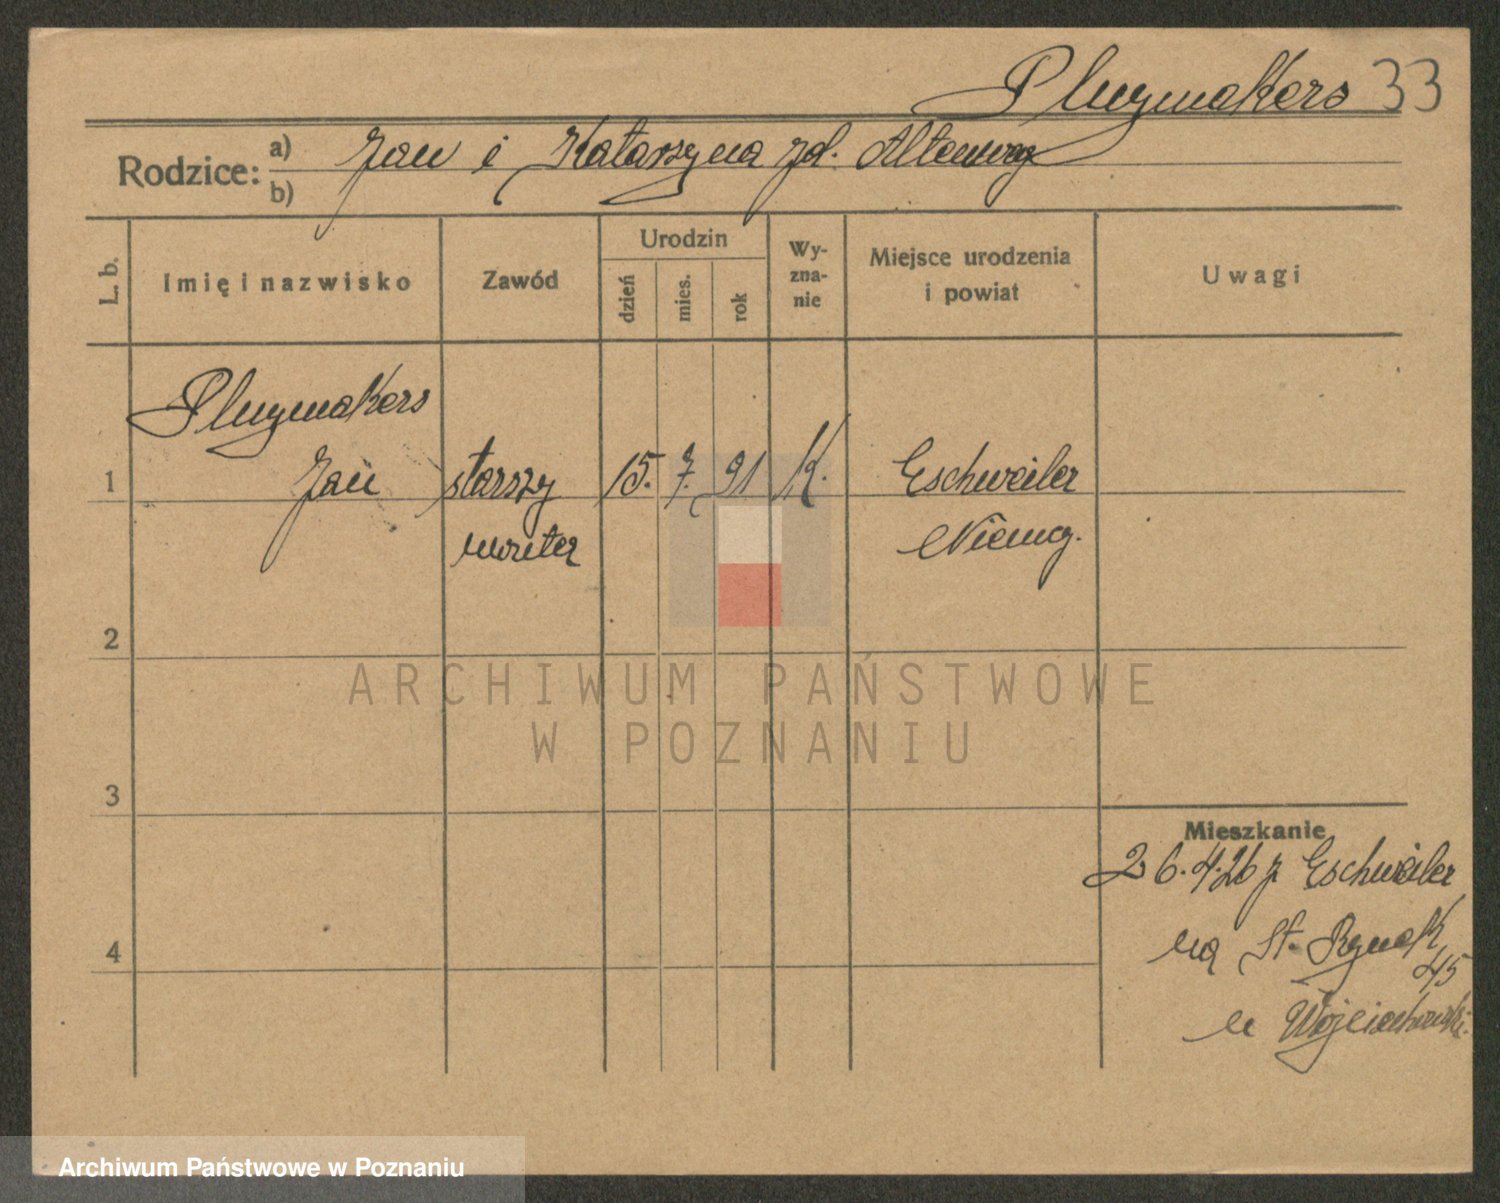 Pluymakers 33
Rodzice: a) Jan i Katarzyna zd.
b)
L. b. Imię i nazwisko Zawód Urodzin dzień mies. rok Wy-zna-nie Miejsce urodzenia i powiat Uwagi
Pluymakers
1 Jan starszy 15. 7. 91 K. Eschweiler
Niemcy.
2
ARCHIWUM PAŃSTWOWE
W POZNANIU
3
Mieszkanie
26.4.26 z Eschweiler
na St. Rynek
4
45
u Wojciechowski.
Archiwum Państwowe w Poznaniu